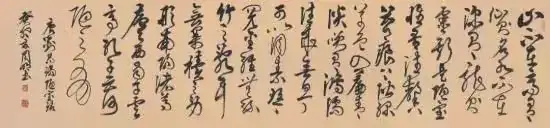 山不在高有
仙則名水不在
深有龍則
靈斯是陋室
惟吾德馨
苔痕上階綠
草色入簾青
談笑有鴻儒
往來無白丁
可以調素琴
閱金經無絲
竹之亂耳
無案牘之勞
形南陽諸葛
廬西蜀子雲
亭孔子云何
陋之有
唐劉禹錫陋室銘